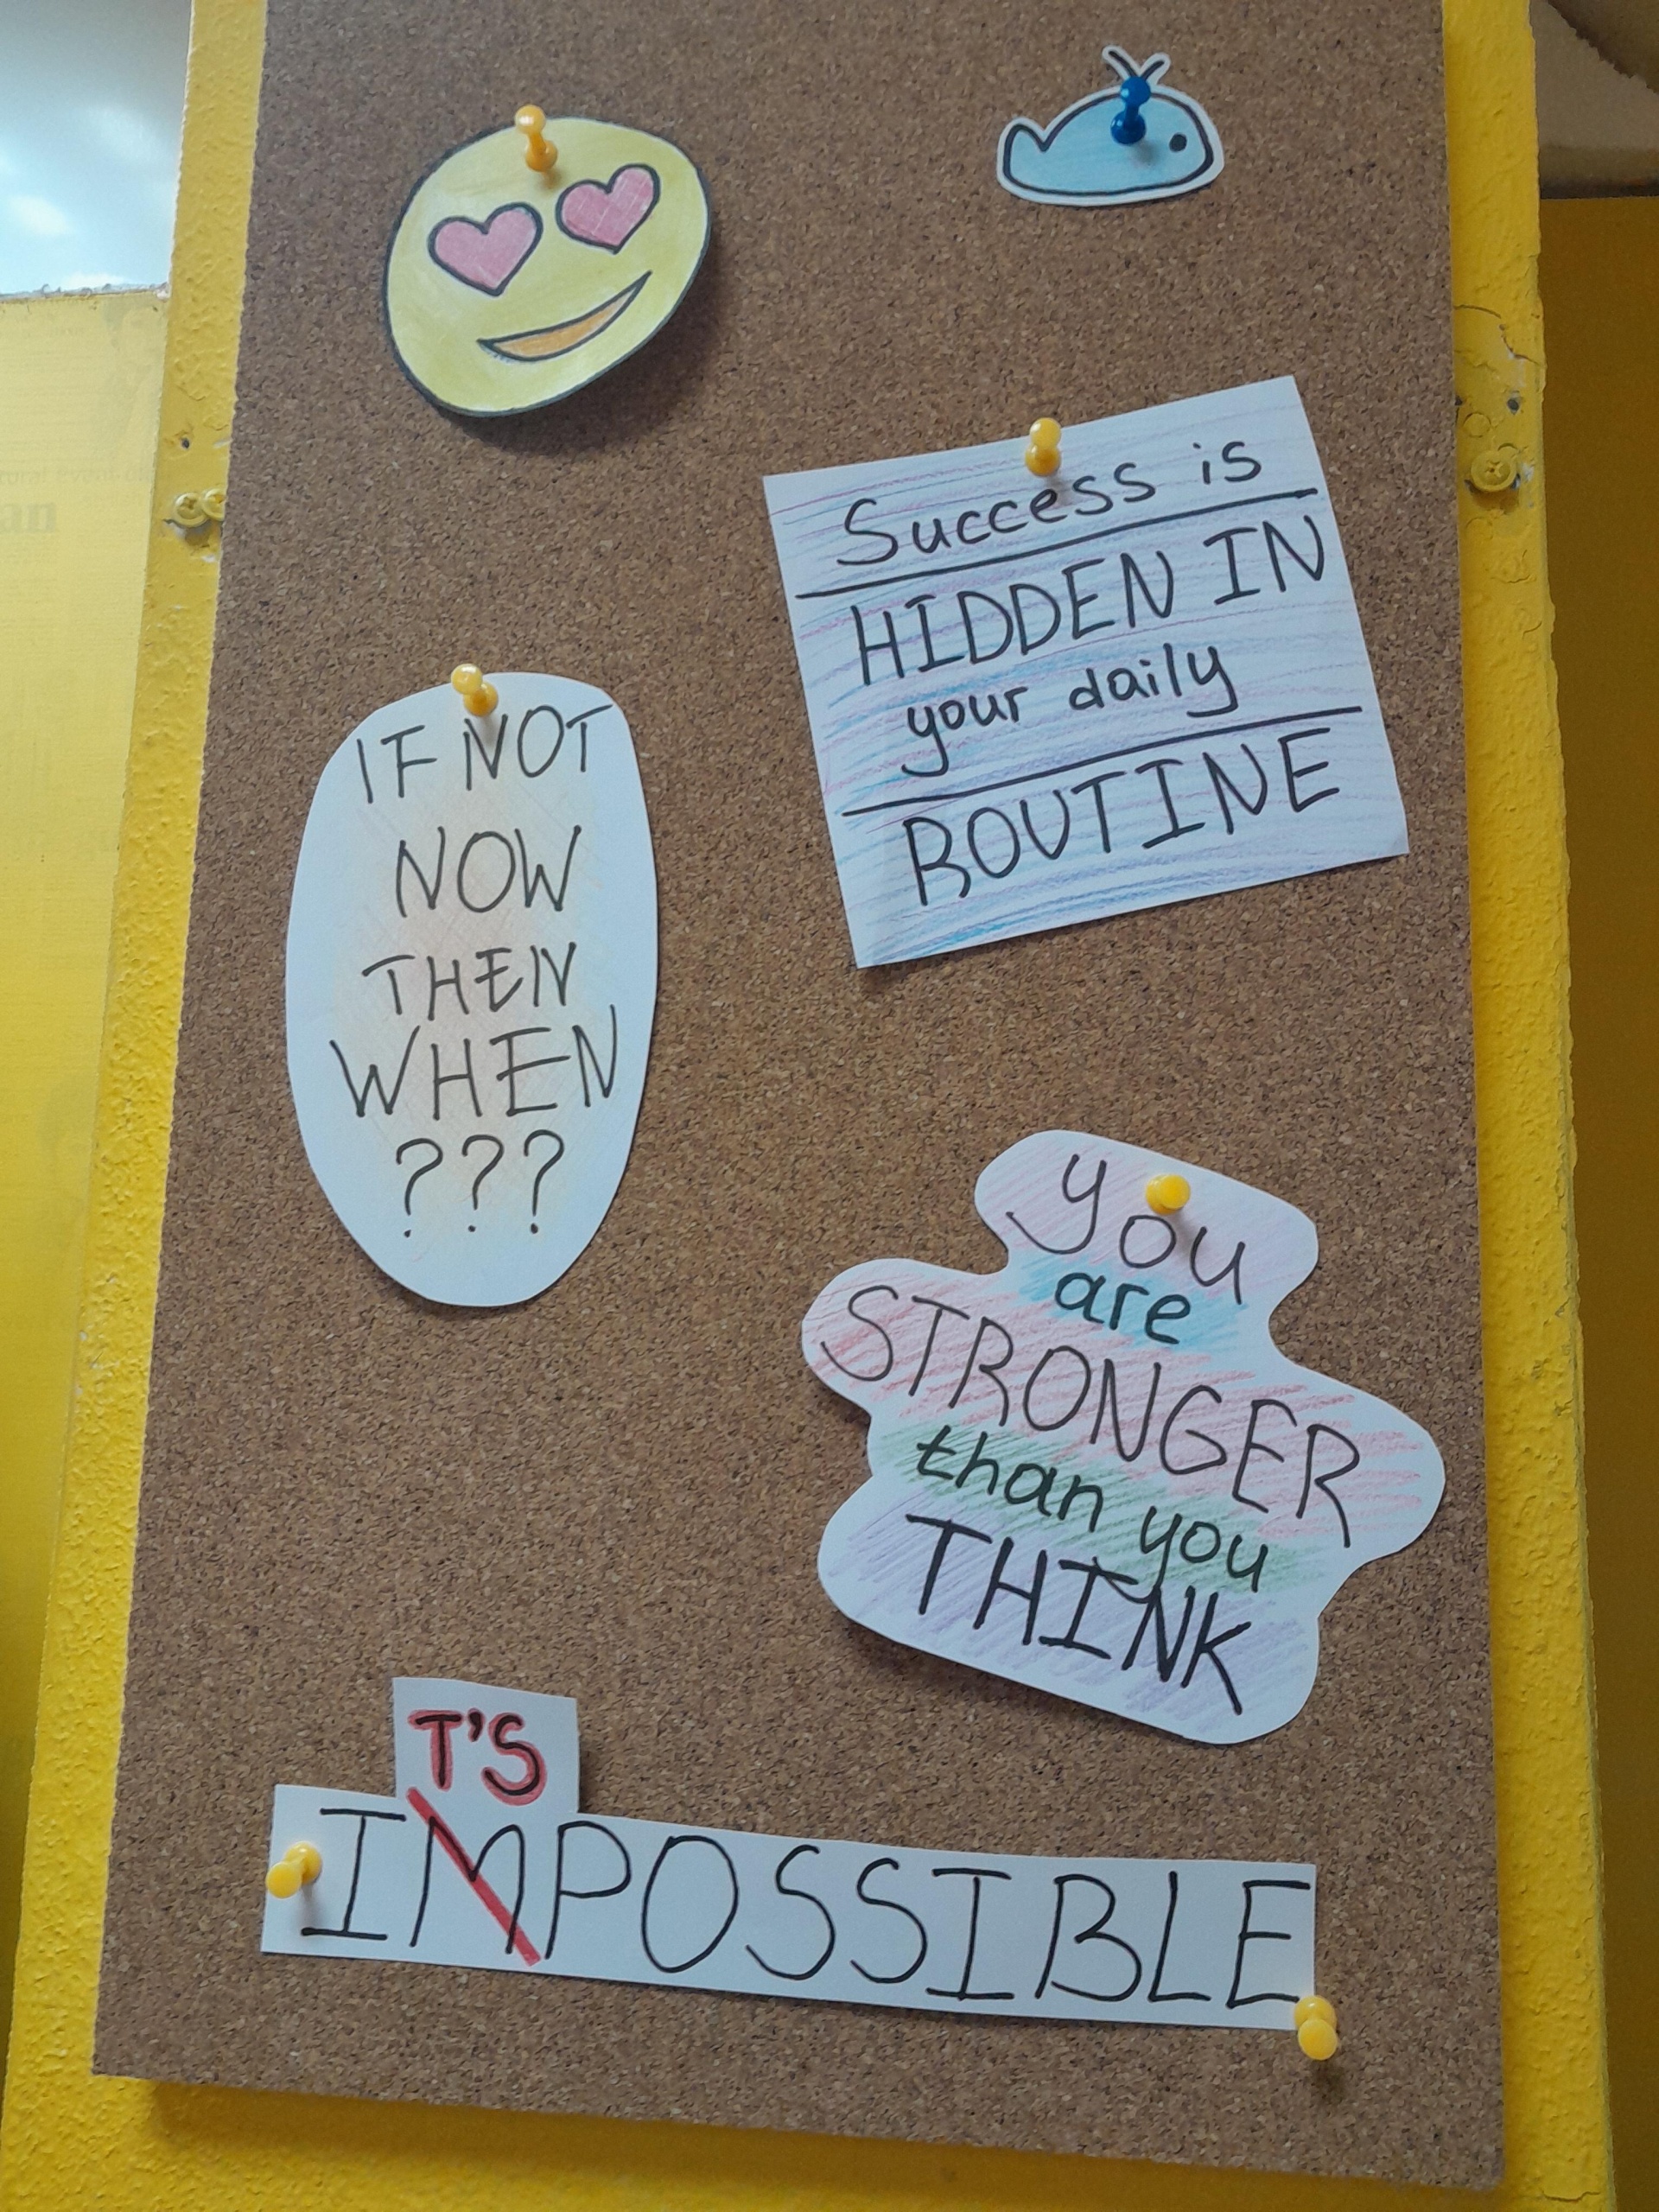 Success is
HIDDEN IN
your daily
ROUTINE
IF NOT
NOW
THEN
WHEN
???
you
are
STRONGER
than you
THINK
T'S
IMPOSSIBLE
an